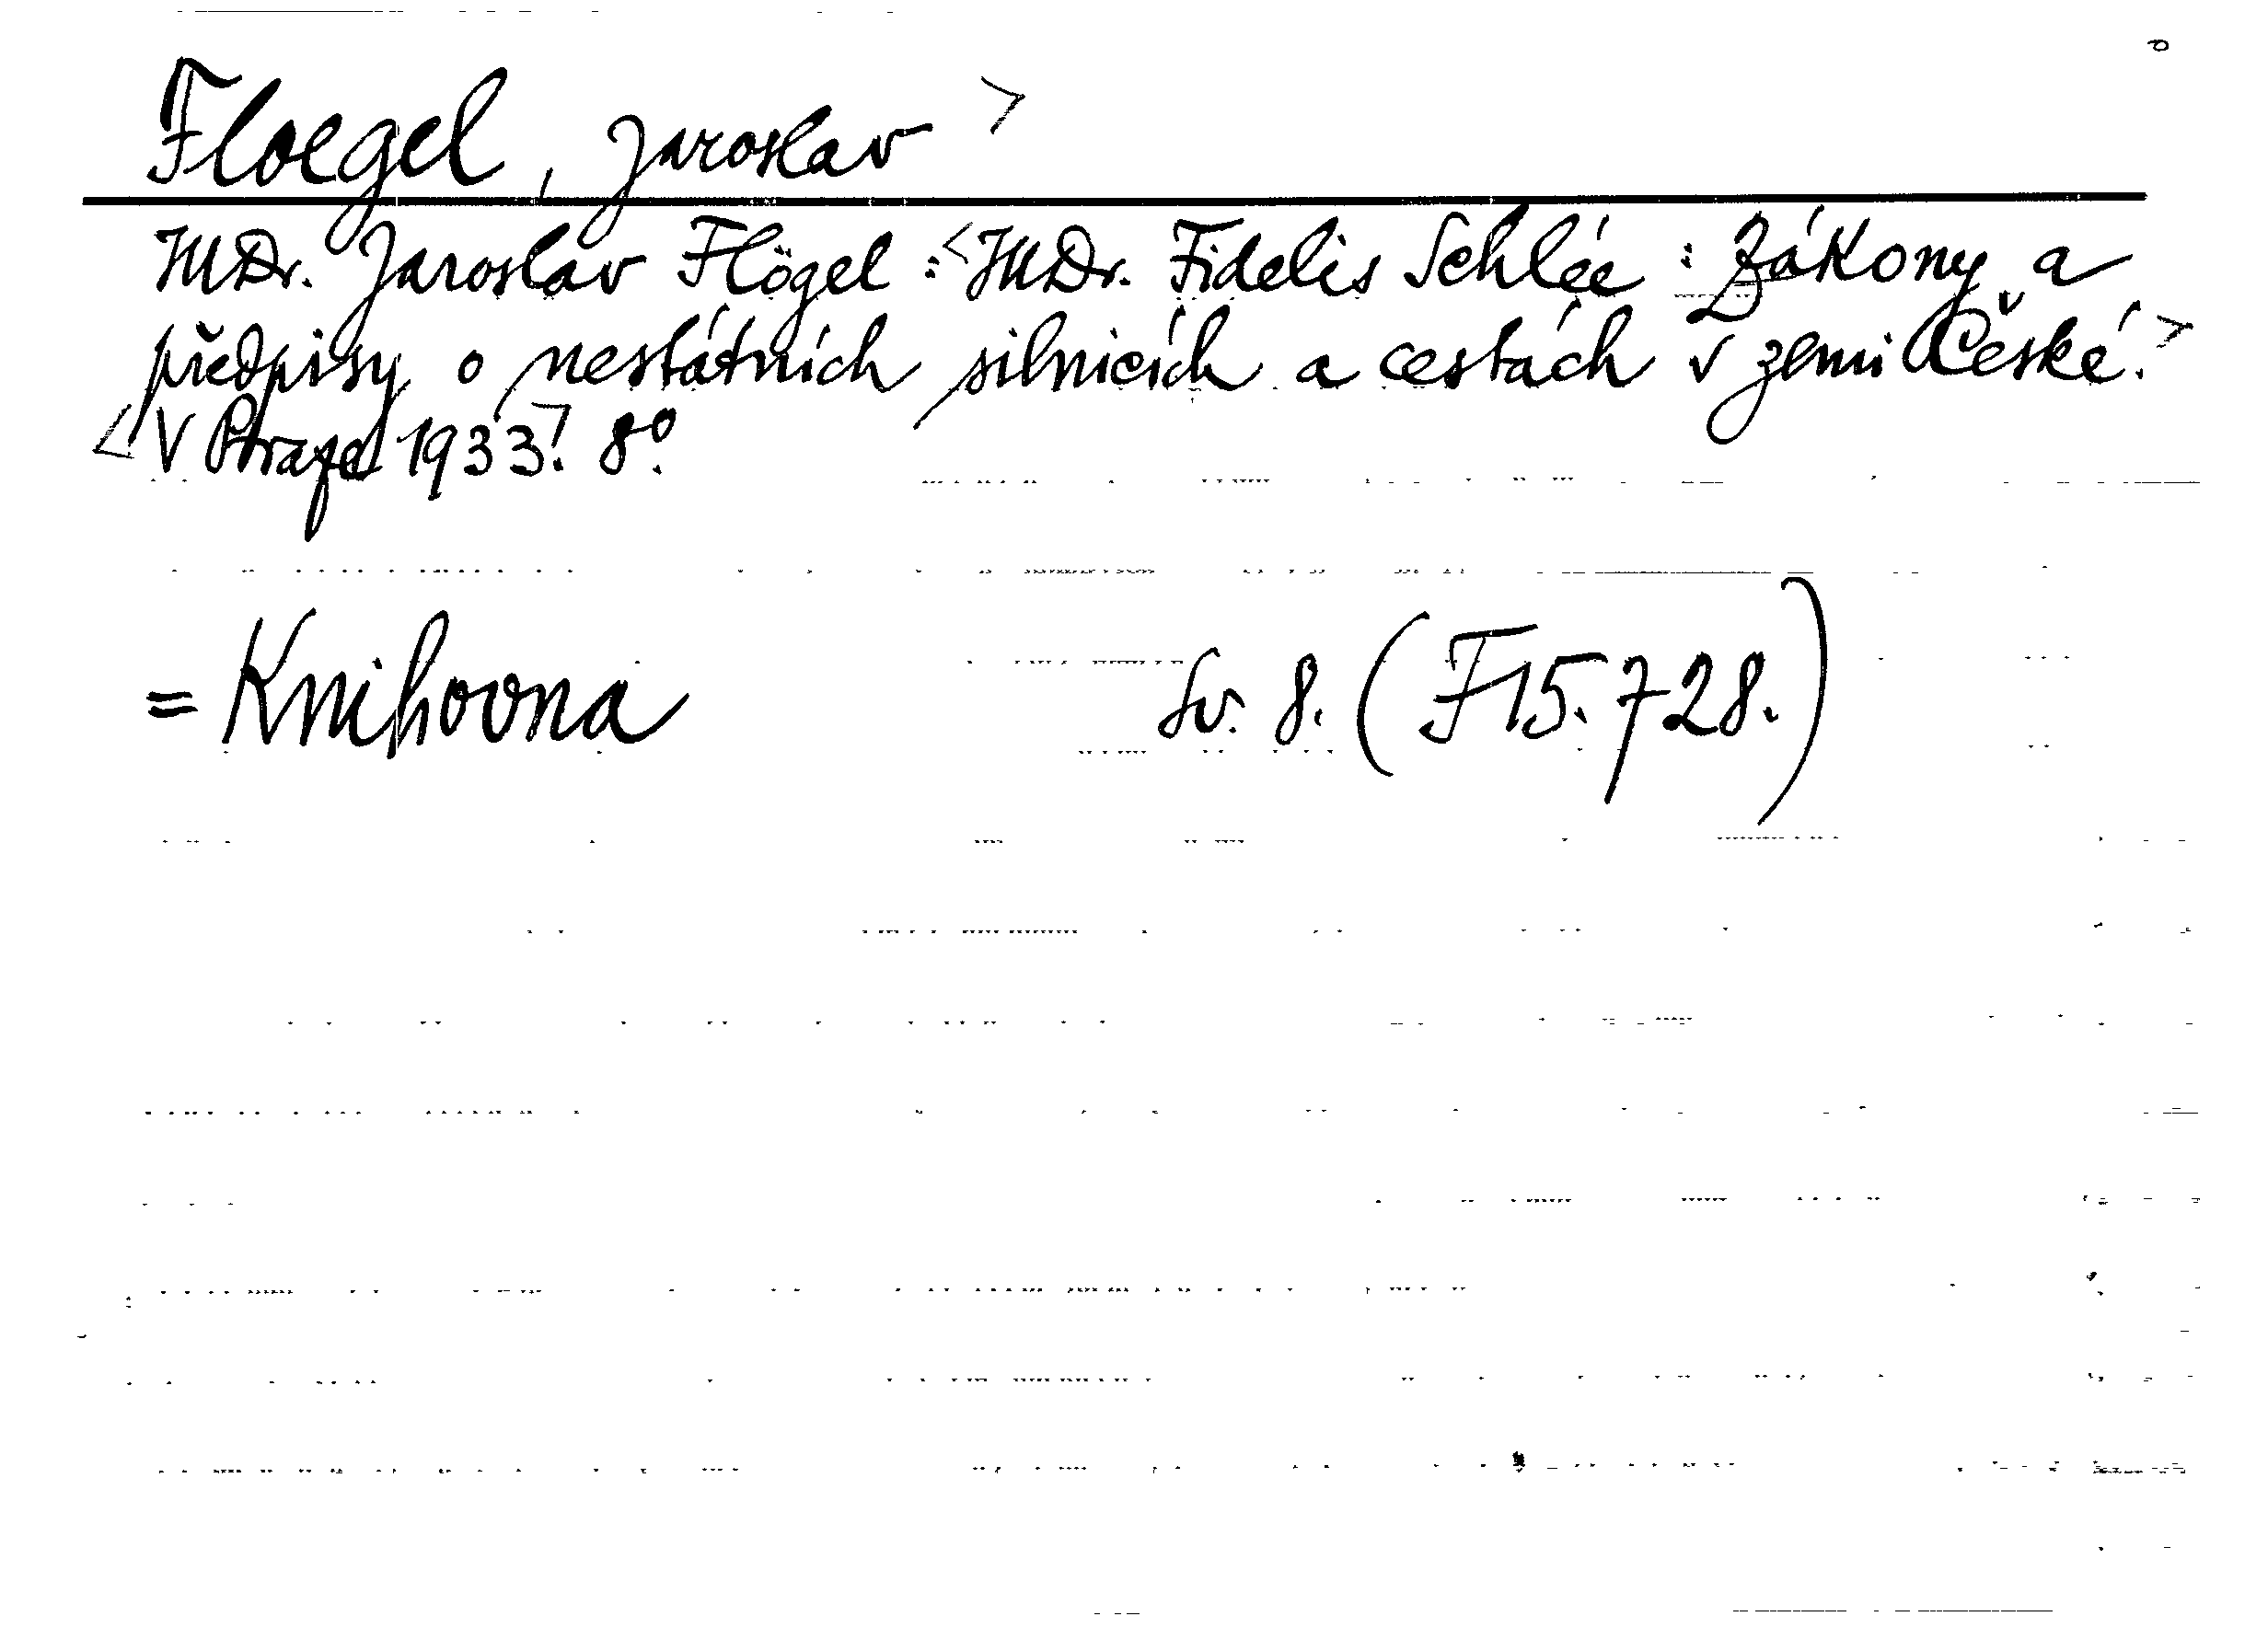 Floegel, Jaroslav >
JUDr. Jaroslav Flögel : < JUDr. Fidelis Schlée : Zákony a
předpisy o nestátních silnicích a cestách v zemi České. >
< V Praze 1933. > 8°.
= Knihovna Sv. 8. (F 15.728.)